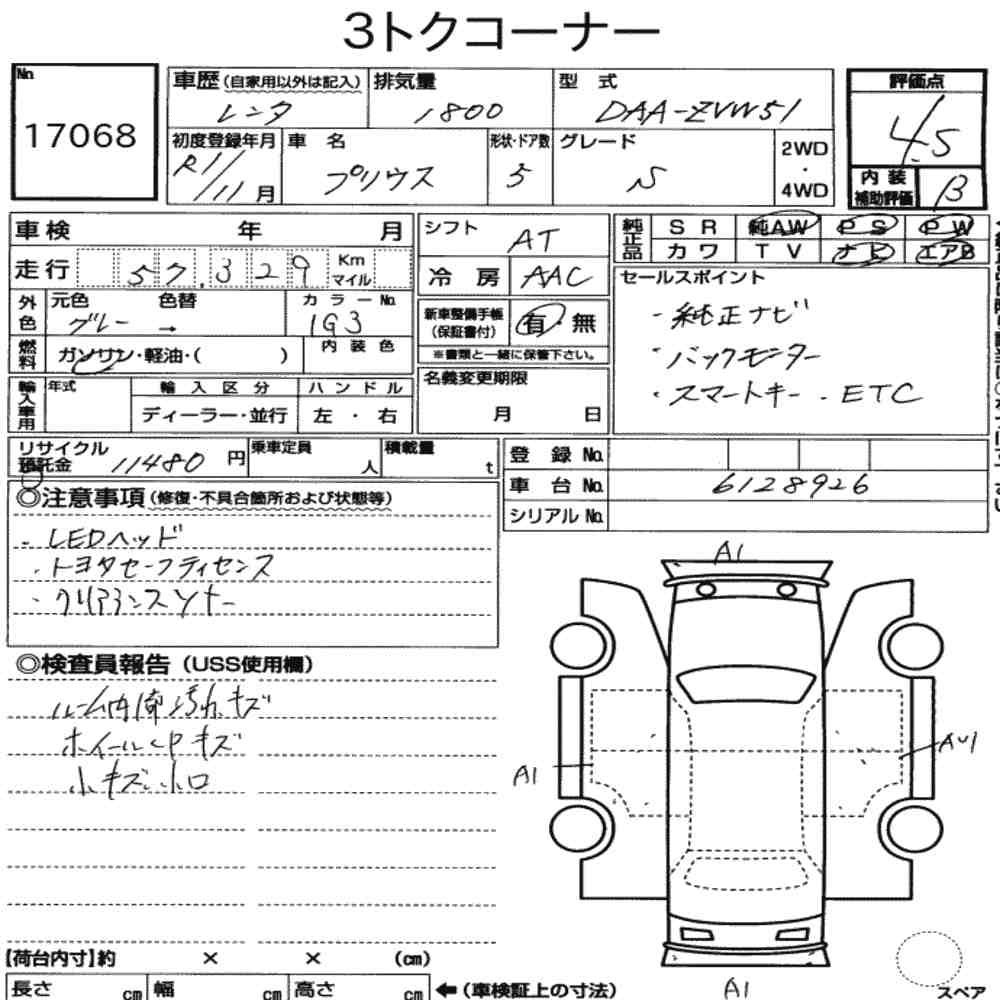 3トクコーナー
No
17068
車歴(自家用以外は記入) 排気量 型式
レンタ 1800 DAA-ZVW51
評価点
4.5
初度登録年月 車名 形状・ドア数 グレード 2WD・4WD
R1/11月 プリウス 5 S
内装補助評価 B
車検 年 月
シフト AT
純正品 SR 純AW PS PW
カワ TV ナビ エアB
走行 57,329 Km マイル
冷房 AAC
セールスポイント
・純正ナビ
・バックモニター
・スマートキー.ETC
外色 元色 色替 カラーNo
グレー → 1G3
新車整備手帳(保証書付) 有・無
※書類と一緒に保管下さい。
燃料 ガソリン・軽油・( ) 内装色
名義変更期限
月 日
輸入車用 年式 輸入区分 ハンドル
ディーラー・並行 左・右
リサイクル預託金 11480円 乗車定員 人 積載量 t
登録No
車台No 6128926
シリアルNo
◎注意事項(修復・不具合箇所および状態等)
・LEDヘッド
・トヨタセーフティセンス
・クリアランスソナー
◎検査員報告(USS使用欄)
ルーム内傷汚れキズ
ホイールCPキズ
小キズ小凹
A1
A1
AU1
A1
【荷台内寸】約 × × (cm)
長さ cm 幅 cm 高さ cm ←(車検証上の寸法)
スペア